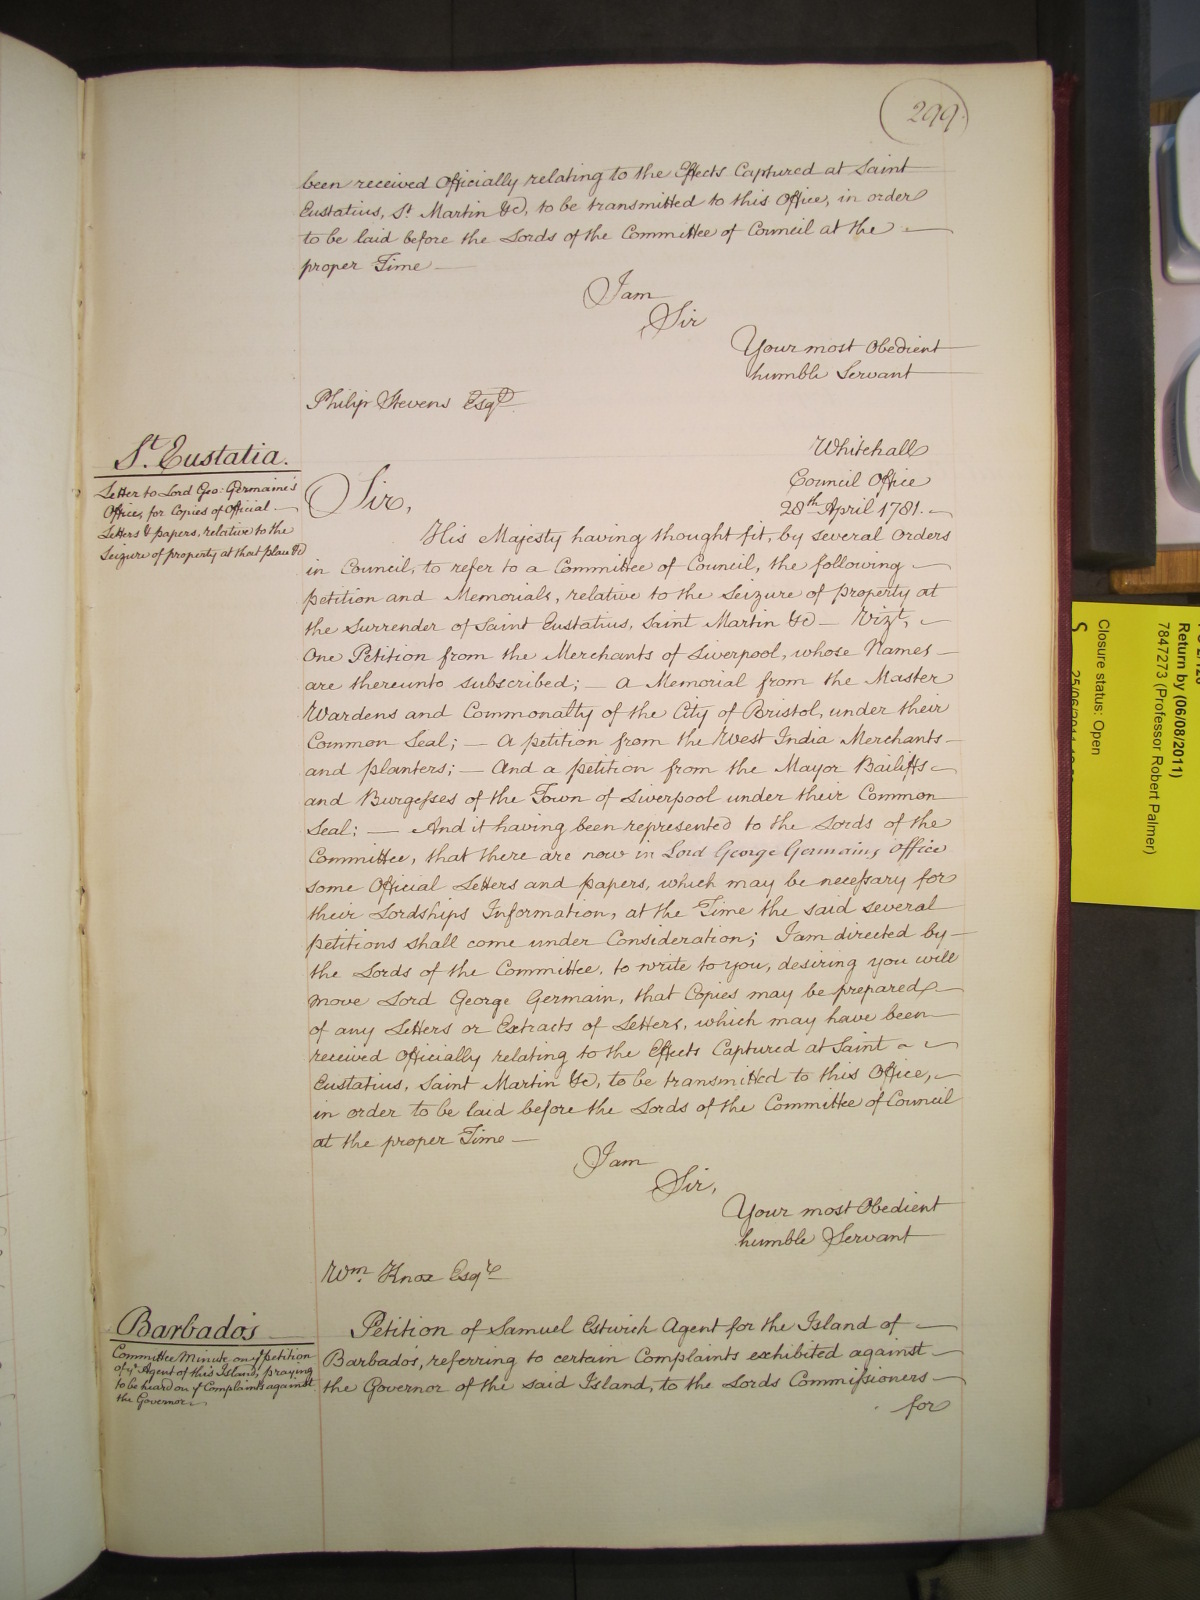 299.
been received Officially relating to the Effects Captured at Saint
Eustatius, St Martin &c, to be transmitted to this Office, in order
to be laid before the Lords of the Committee of Council at the
proper Time —
I am
Sir
Your most Obedient
humble Servant
Philip Stevens Esqr.
St. Eustatia.
Letter to Lord Geo: Germaine's
Office, for Copies of Official —
Letters & papers, relative to the
Seizure of property at that place &c
Whitehall
Council Office
28th April 1781. —
Sir,
His Majesty having thought fit, by several Orders
in Council, to refer to a Committee of Council, the following —
petition and Memorials, relative to the Seizure of property at
the Surrender of Saint Eustatius, Saint Martin &c — Vizt, —
One Petition from the Merchants of Liverpool, whose Names —
are thereunto subscribed; — a Memorial from the Master
Wardens and Commonalty of the City of Bristol, under their
Common Seal; — A petition from the West India Merchants —
and planters; — And a petition from the Mayor Bailiffs —
and Burgesses of the Town of Liverpool under their Common
Seal: — And it having been represented to the Lords of the
Committee, that there are now in Lord George Germains Office
some Official Letters and papers, which may be necessary for
their Lordships Information, at the Time the said several
petitions shall come under Consideration; I am directed by —
the Lords of the Committee, to write to you, desiring you will
move Lord George Germain, that Copies may be prepared —
of any Letters or Extracts of Letters, which may have been
received Officially relating to the Effects Captured at Saint —
Eustatius, Saint Martin &c, to be transmitted to this Office, —
in order to be laid before the Lords of the Committee of Council
at the proper Time —
I am
Sir,
Your most Obedient
humble Servant
Wm. Knox Esqre
Barbados
Committee Minute on ye petition
of ye Agent of this Island, praying
to be heard on ye Complaints against
the Governor —
Petition of Samuel Estwick Agent for the Island of —
Barbados, referring to certain Complaints exhibited against —
the Governor of the said Island, to the Lords Commissioners —
for
Return by (06/08/2011)
7847273 (Professor Robert Palmer)
Closure status: Open
S